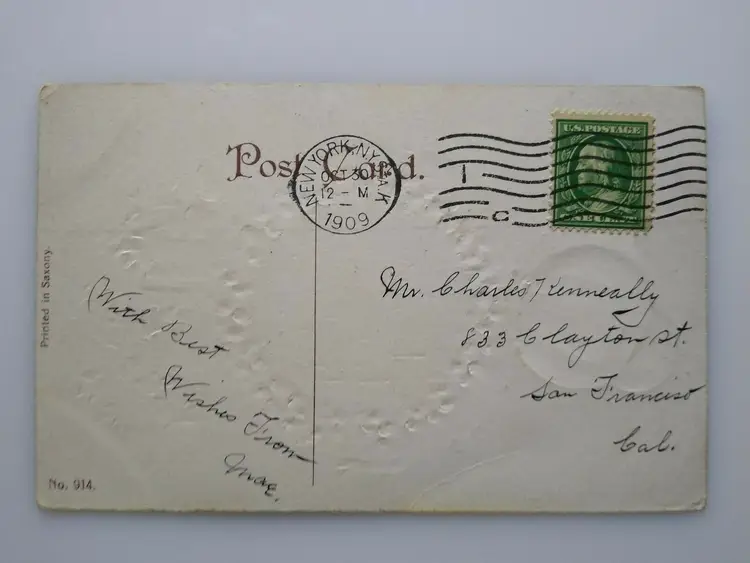 Post Card.
NEW YORK, N.Y.
OCT 30
12 - M
1909
1
C
U.S. POSTAGE
Mr. Charles Kenneally
833 Clayton st.
San Francisco
Cal.
With Best
Wishes From
Mae.
Printed in Saxony.
No. 914.